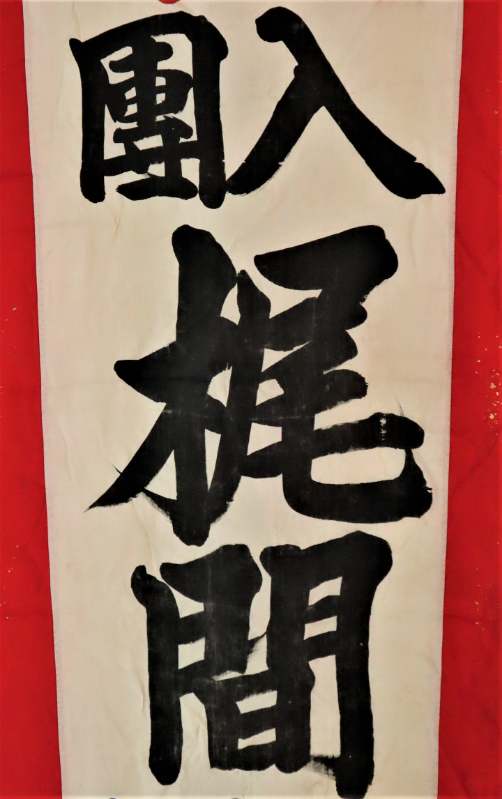 入團
梶間